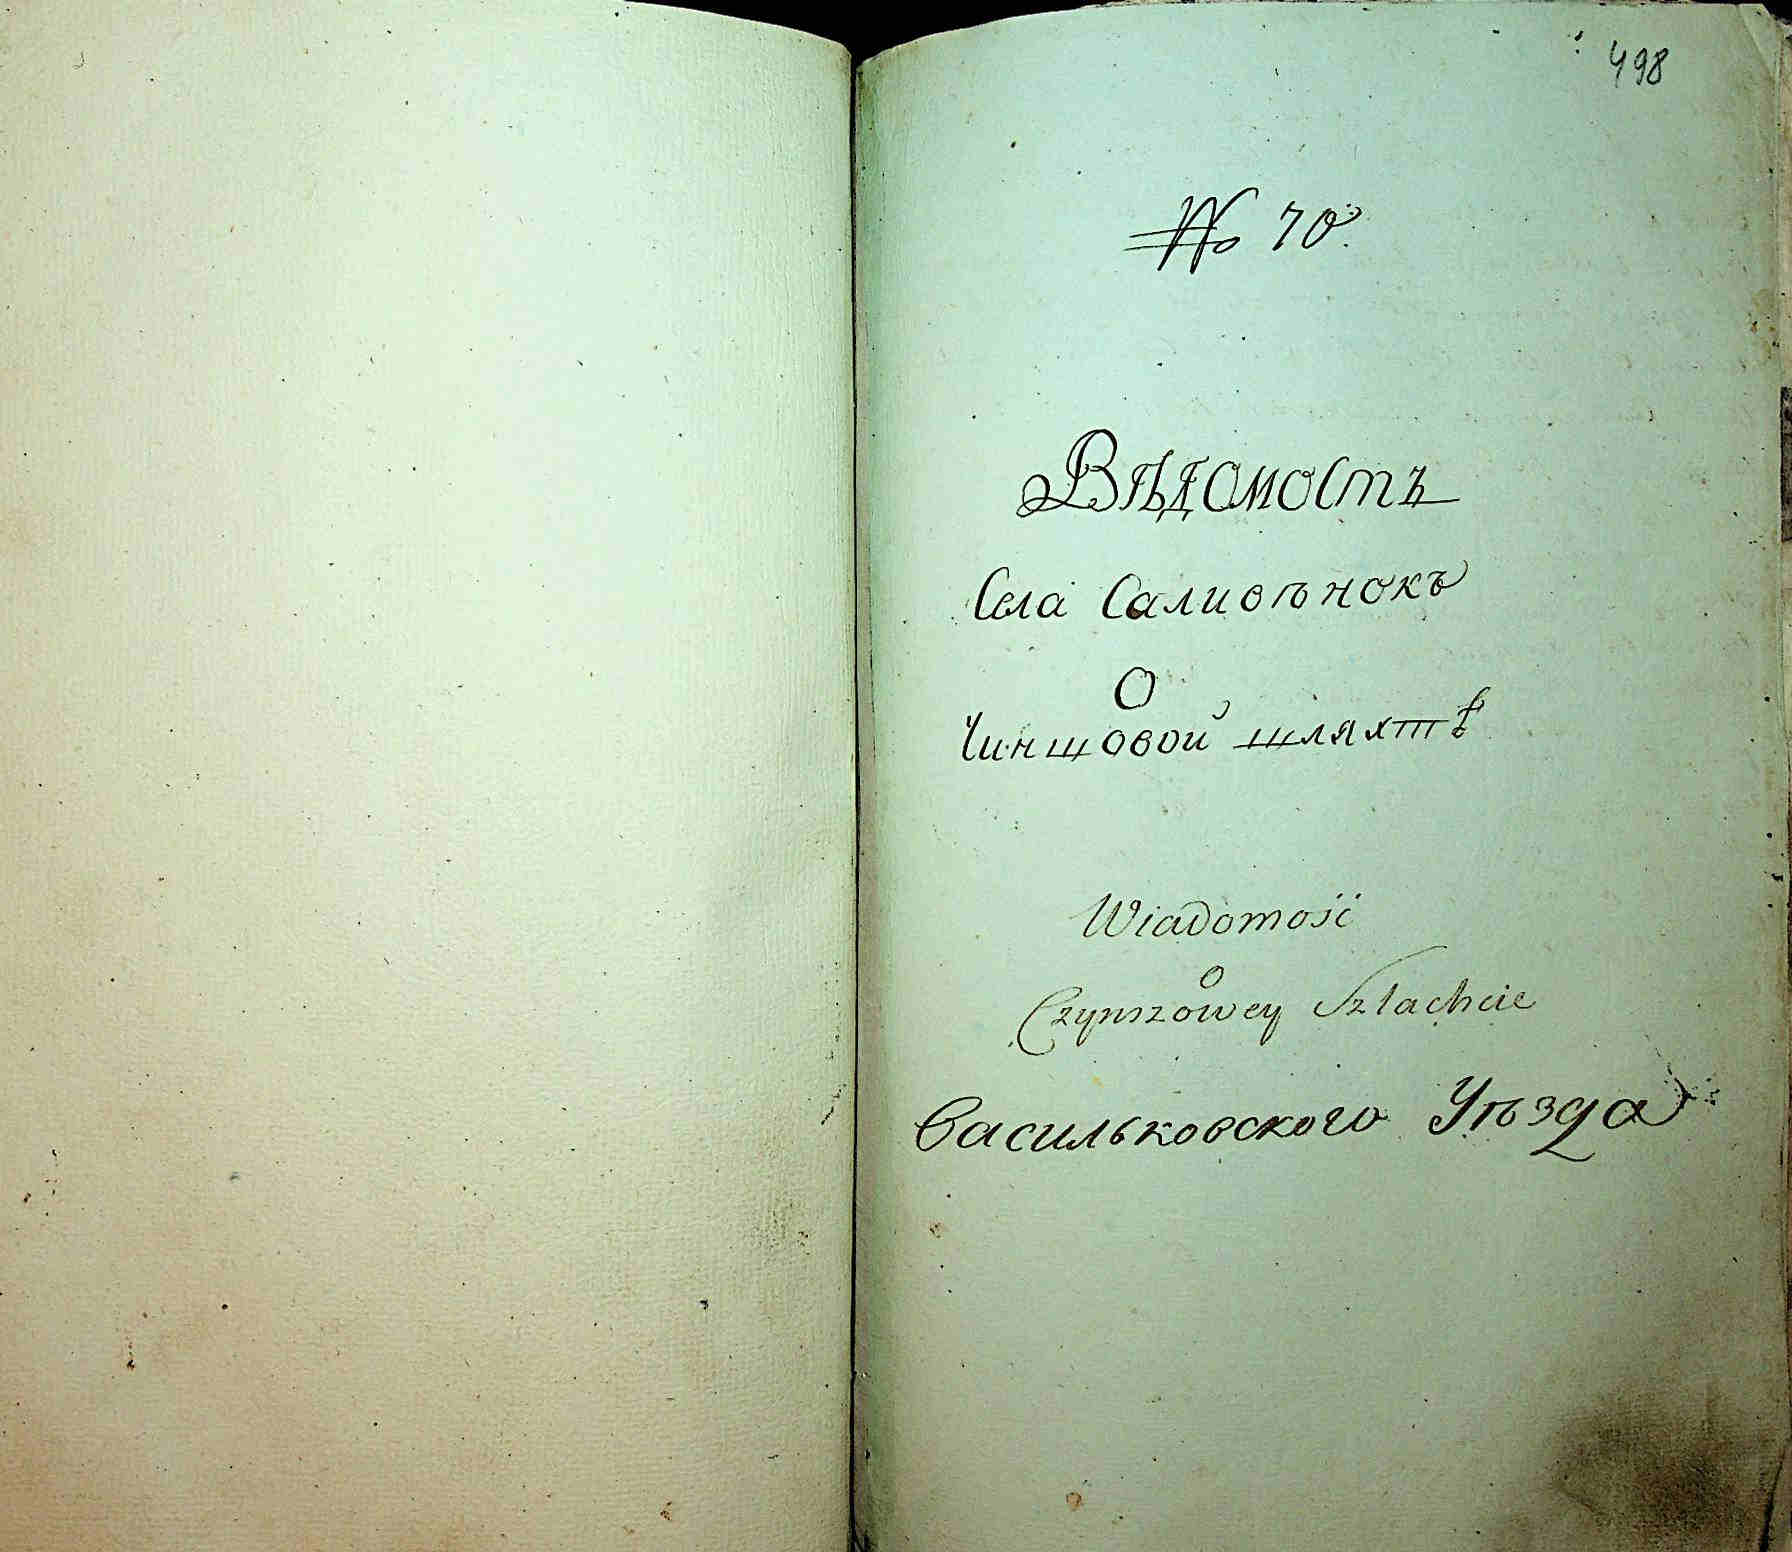 498
№ 70.
Вѣдомостъ
Села Саливѣнокъ
О
Чиншовой шляхтѣ
Wiadomość
o
Czynszowey Szlachcie
Васильковского Уѣзда